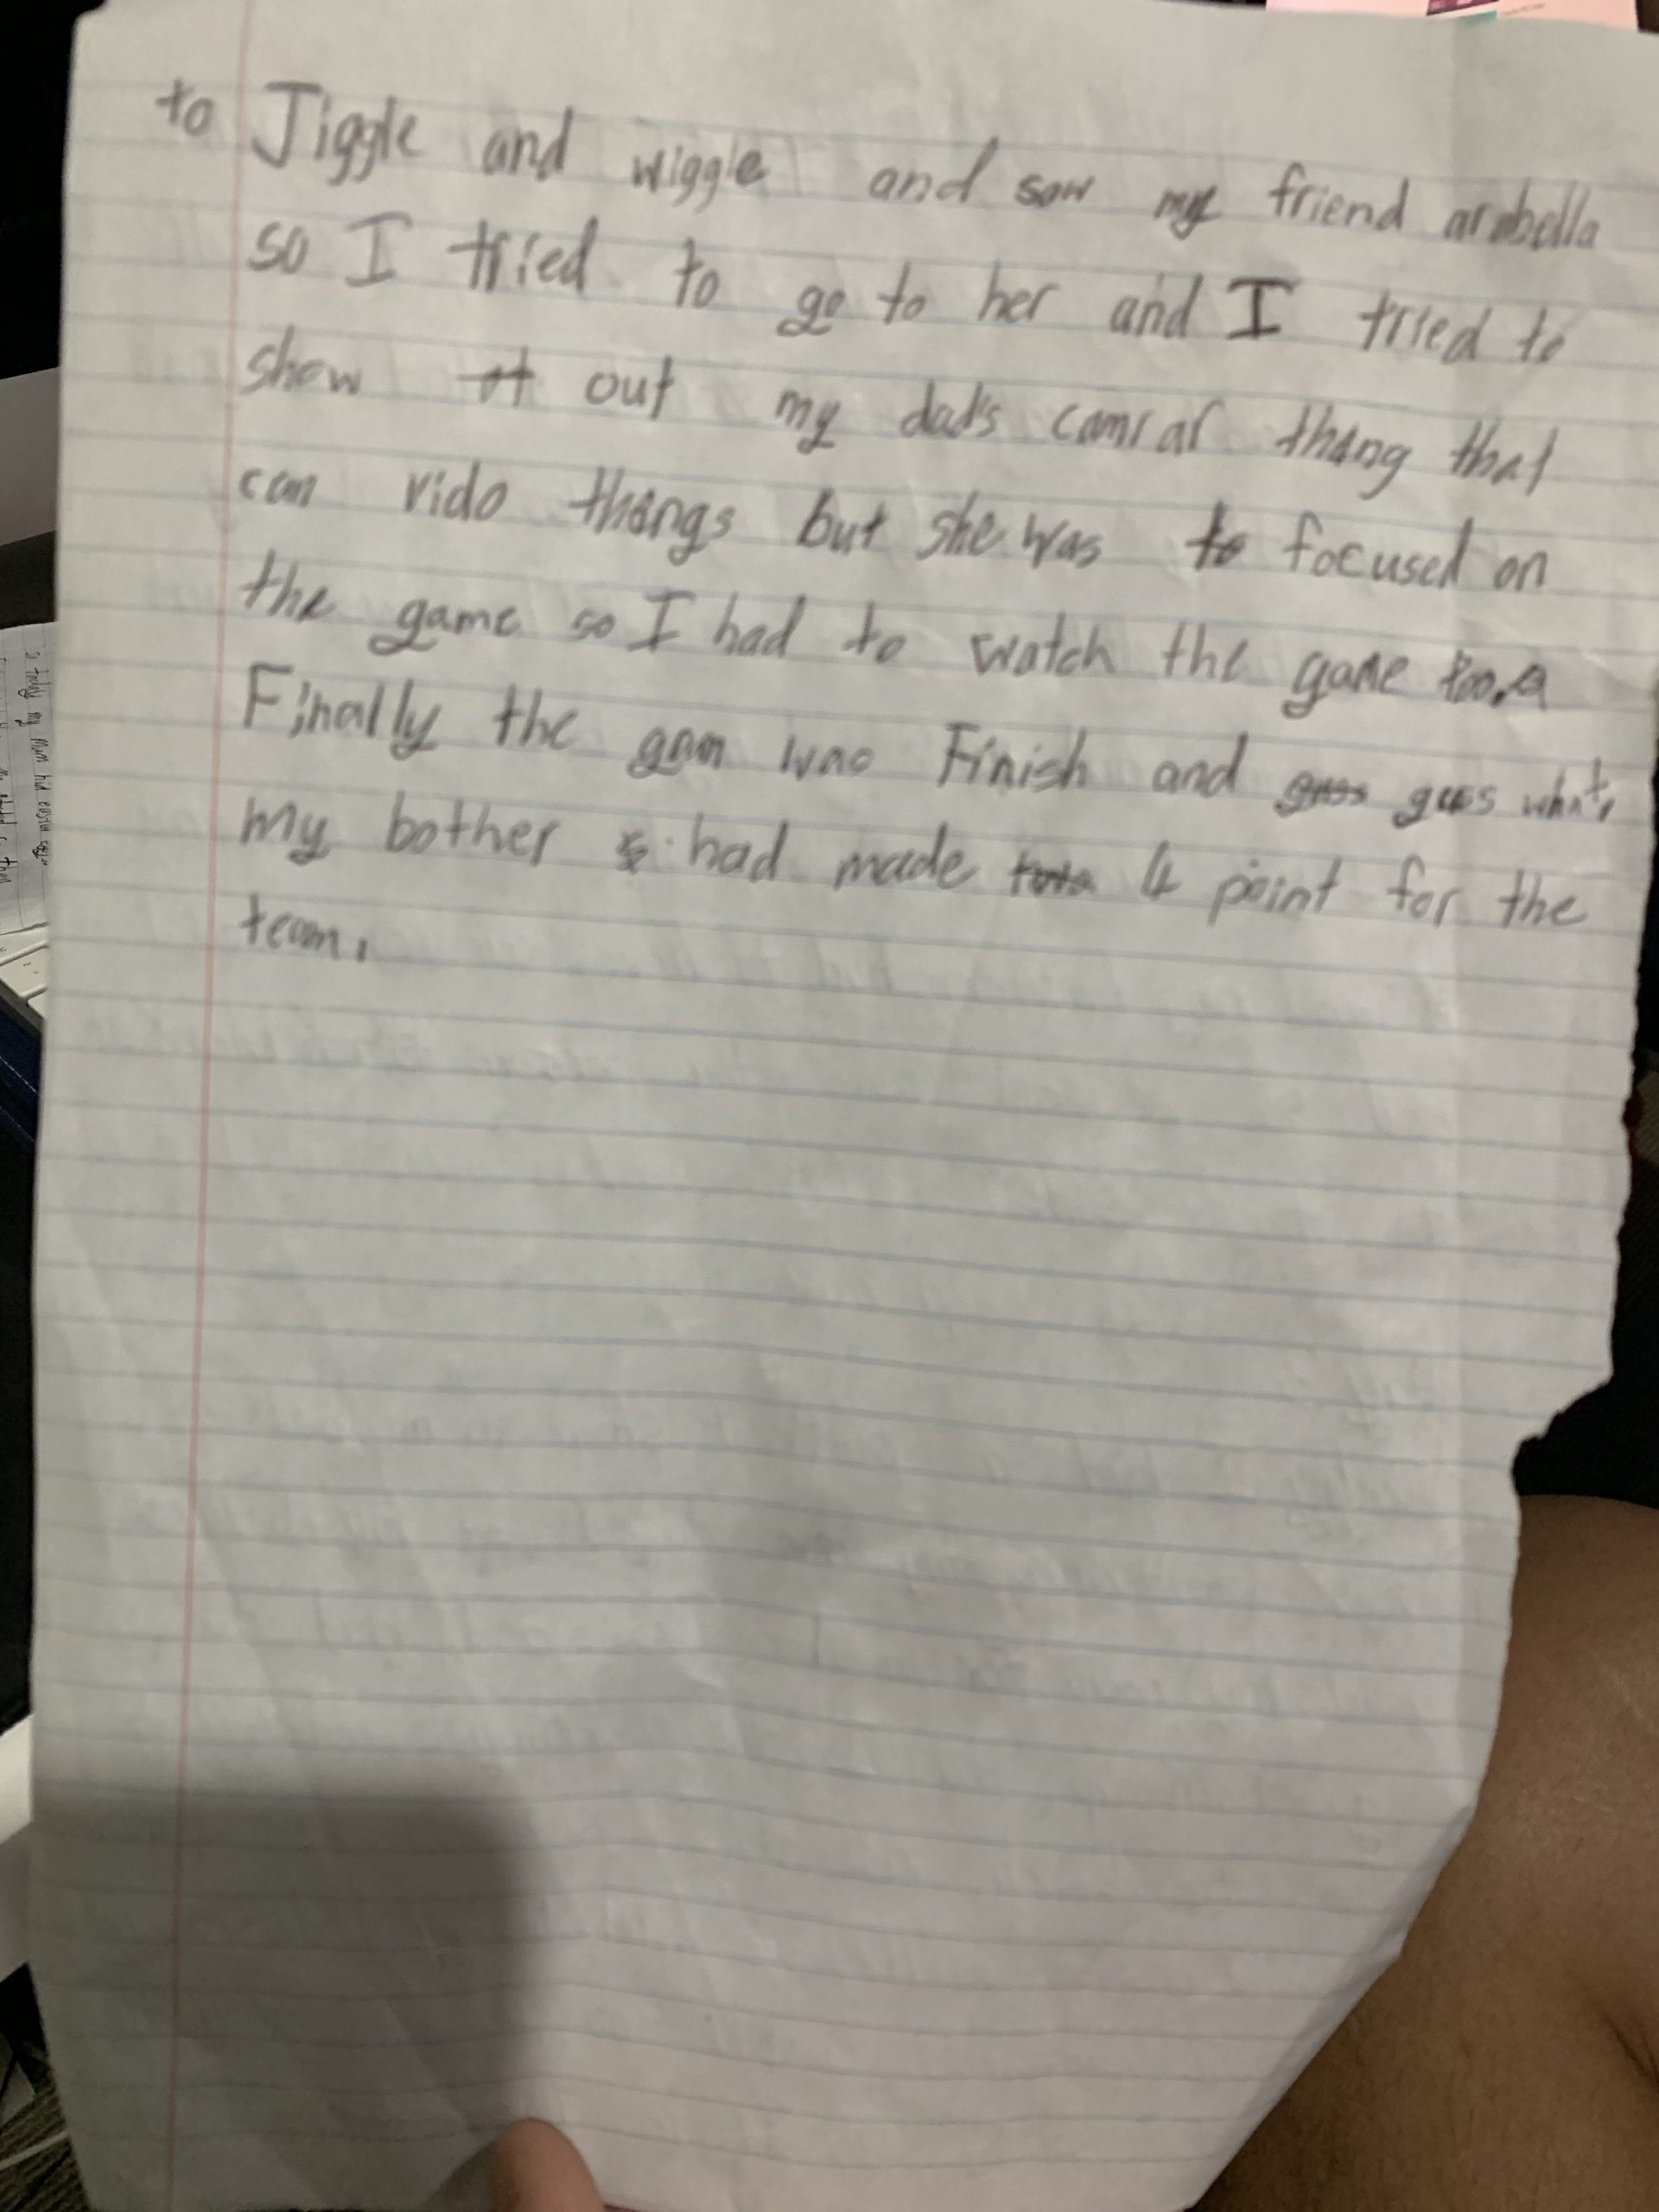 to Jiggle and wiggle and saw my friend arabella
so I tried to go to her and I tried to
show out my dad's camrar thang that
can vido thangs but she was to focused on
the game so I had to watch the game too.
Finally the gam was Finish and guss what,
my bother had made 4 point for the
team.